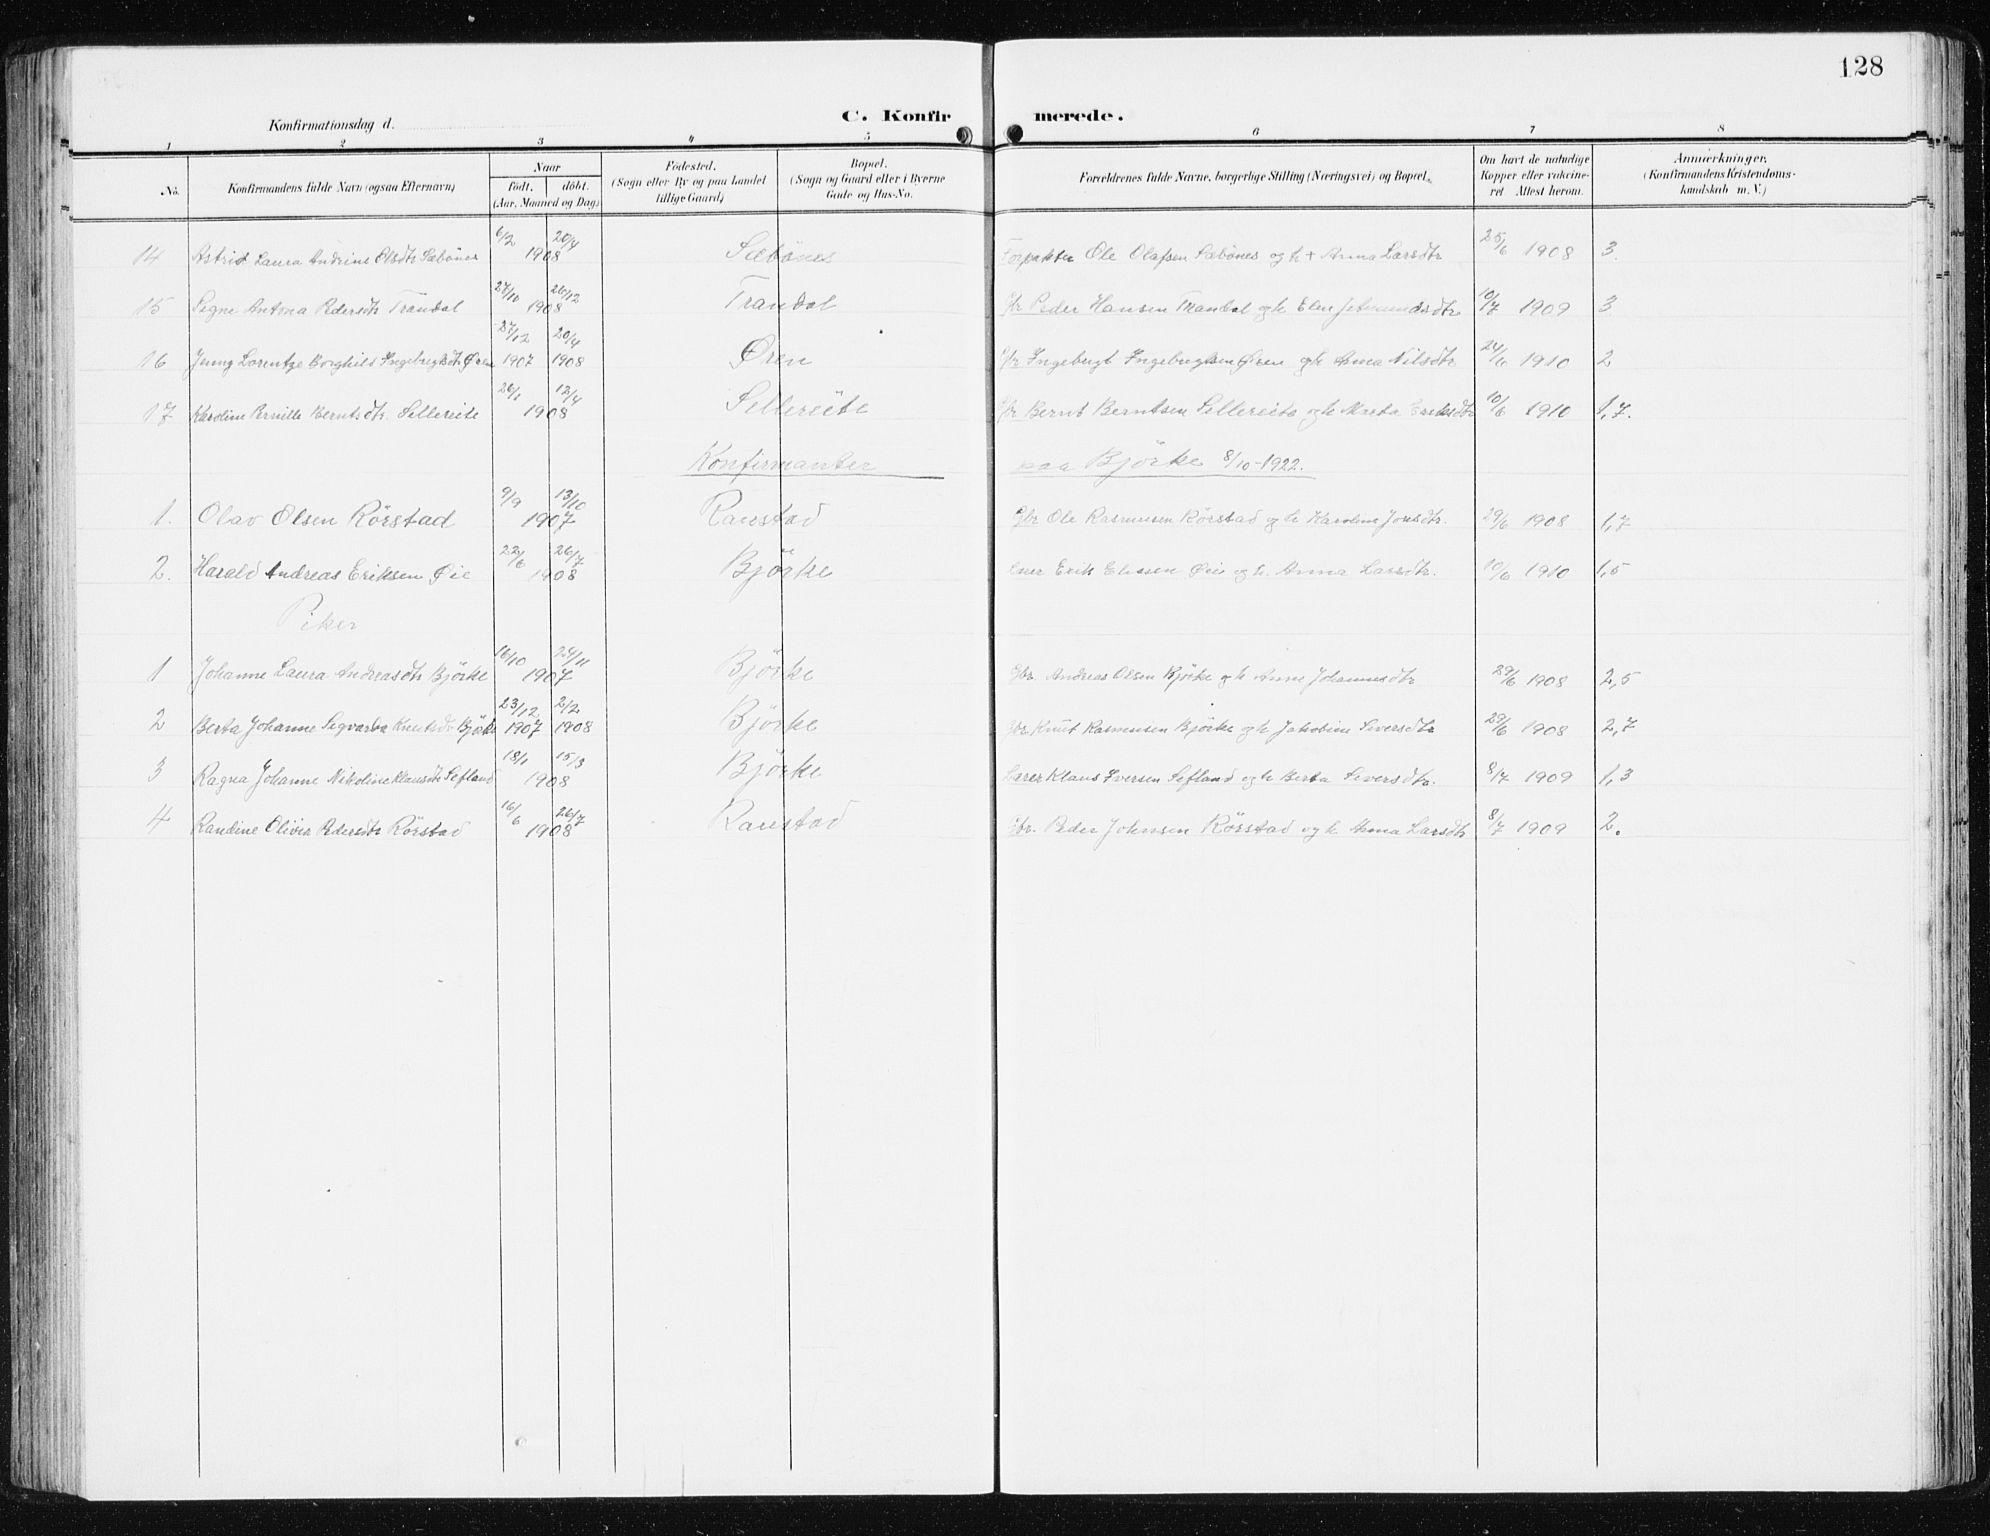 128
C. Konfirmerede.
Konfirmationsdag d.
1 2 3 4 5 6 7 8
No. Konfirmandens fulde Navn (ogsaa Efternavn) Naar født. døbt. (Aar, Maaned og Dag) Fødested. (Sogn eller By og paa Landet tillige Gaard) Bopæl. (Sogn og Gaard eller i Byerne Gade og Hus-No. Forældrenes fulde Navne, borgerlige Stilling (Næringsvei) og Bopæl. Om havt de naturlige Kopper eller vakcineret. Attest herom. Anmærkninger. (Konfirmandens Kristendomskundskab m. V.)
14 Astrid Laura Andrine Olsdtr Sæbönes 6/2 20/4 1908 Sæbönes Forpakter Ole Olafsen Sæbönes og h + Anna Larsdtr 25/6 1908 3.
15 Signe Antona Pedersdtr Trandal 27/10 26/12 1908 Trandal Gbr Peder Hansen Trandal og h Eline Jetmundsdtr 10/7 1909 3
16 Jenny Lorentze Borghild Ingebrigtsdtr Øren 27/12 1907 20/4 1908 Øren Gbr Ingebrigt Ingebrigtsen Øren og h Anna Nilsdtr 24/6 1910 2
17 Karoline Pernille Berntsdtr. Sellereite 26/1 12/4 1908 Sellereite Gbr Bernt Berntsen Sellereite og h Marta Eriksdtr 10/6 1910 1,7.
Konfirmanter paa Björke 8/10-1922.
1. Olav Olsen Rörstad 9/9 13/10 1907 Raustad Gbr Ole Rasmusen Rörstad og h Karoline Jonsdtr. 29/6 1908 1,7
2. Harald Andreas Eriksen Øie 22/6 26/7 1908 Björke Erik Eliassen Øie og h. Anna Larsdtr. 10/6 1910 1,5
Piker
1 Johanne Laura Andreasdtr Björke 16/10 24/11 1907 Björke Gbr. Andreas Olsen Björke og h Anne Johannesdtr 29/6 1908 2,5
2 Berta Johanne Sigvarda Knutsdr Björke 23/12 1907 2/2 1908 Björke Gbr Knut Rasmusen Björke og h Jakobine Siversdtr 29/6 1908 2,7
3 Ragna Johanne Nikoline Klausdtr Sefland 18/1 15/3 1908 Björke Lærer Klaus Iversen Sefland og h Berta Siversdtr. 8/7 1909 1,3
4 Randine Olivia Pedersdtr Rörstad 16/6 26/7 1908 Raustad Gbr. Peder Johnsen Rörstad og h Anna Larsdtr 8/7 1909 2.